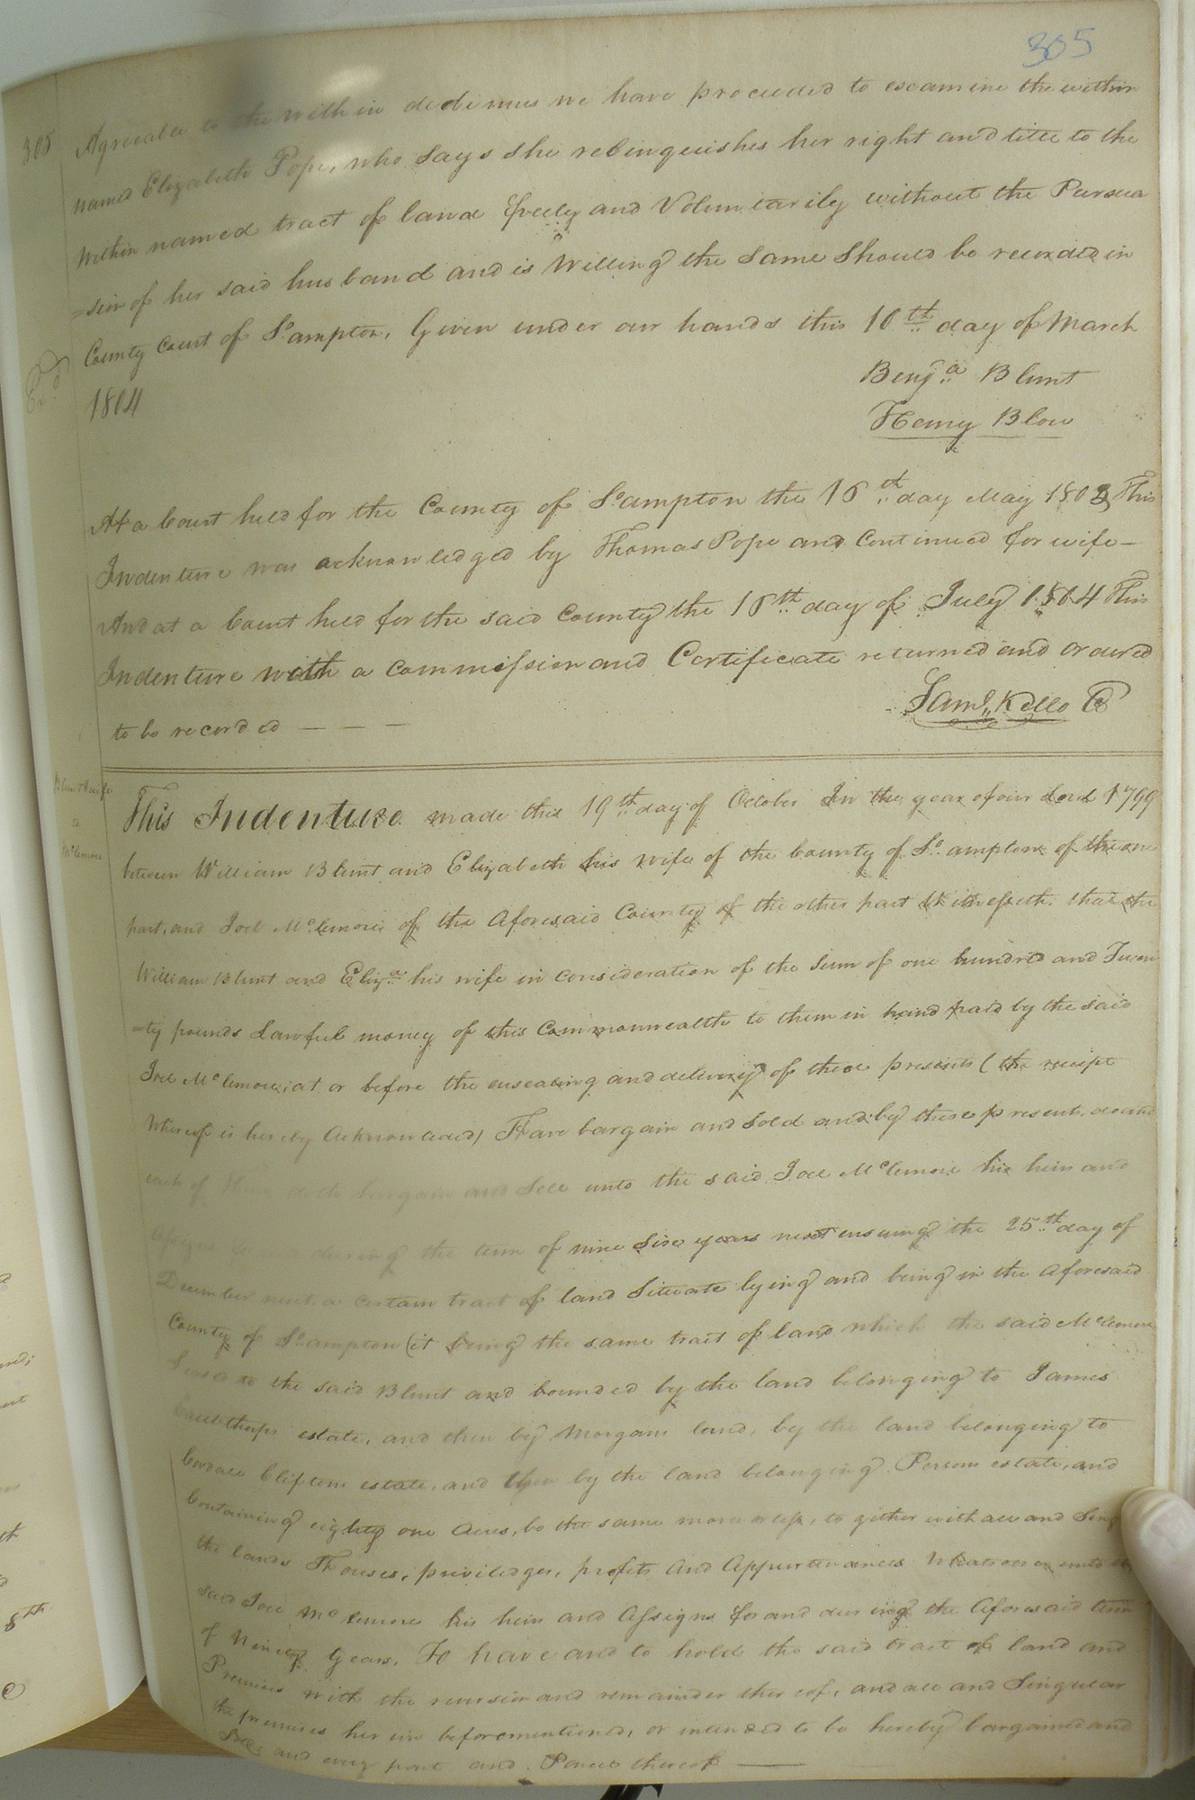 305
305
Agreeable to the within dedimus we have proceeded to examine the within
named Elizabeth Pope, who says she relinquishes her right and title to the
within named tract of land freely and Voluntarily without the Persua
=sion of her said husband and is Willing the same should be recorded in
County Court of So.ampton, Given under our hands this 10th day of March
1804
Benja Blunt
Henry Blow
At a Court held for the County of So.ampton the 16th day May 1803 This
Indenture was acknowledged by Thomas Pope and Continued for wife—
And at a Court held for the said County the 16th day of July 1804 This
Indenture with a commission and Certificate returned and ordered
to be recorded — — —
Saml. Kello CC
Blunt & wife
a
McLemore
This Indenture made this 19th day of October In the year of our Lord 1799
between William Blunt and Elizabeth his wife of the County of So.ampton of the one
part, and Joel McLemore of the Aforesaid County of the other part Witnesseth that the
William Blunt and Eliza his wife in consideration of the Sum of one hundred and Twen
=ty pounds Lawful money of this Commonwealth to them in hand paid by the said
Joel McLemore, at or before the ensealing and delivery of these presents (the receipt
Whereof is hereby Acknowledged) Have bargain and Sold and by these presents do and
each of them doth bargain and Sell unto the said Joel McLemore his heirs and
Assigns during the term of nine Six years next ensuing the 25th day of
December next a certain tract of land Situate lying and being in the aforesaid
County of So.ampton (it being the same tract of land which the said McLemore
to the said Blunt and bounded by the land belonging to James
estate, and then by Morgans land, by the land belonging to
Cliftons estate, and then by the land belonging Persons estate, and
Containing eighty one Acres, be the same more or less, to gither with all and Sing
the lands Houses, priviledges, profits and Appurtenances Whatsoever unto the
said Joel McLemore his heirs and Assigns for and during the Aforesaid term
of Years. To have and to hold the said tract of land and
Premises with the reversion and remainder thereof, and all and Singular
the premises herein beforementioned, or intended to be hereby bargained and
and every part and Parcel thereof —